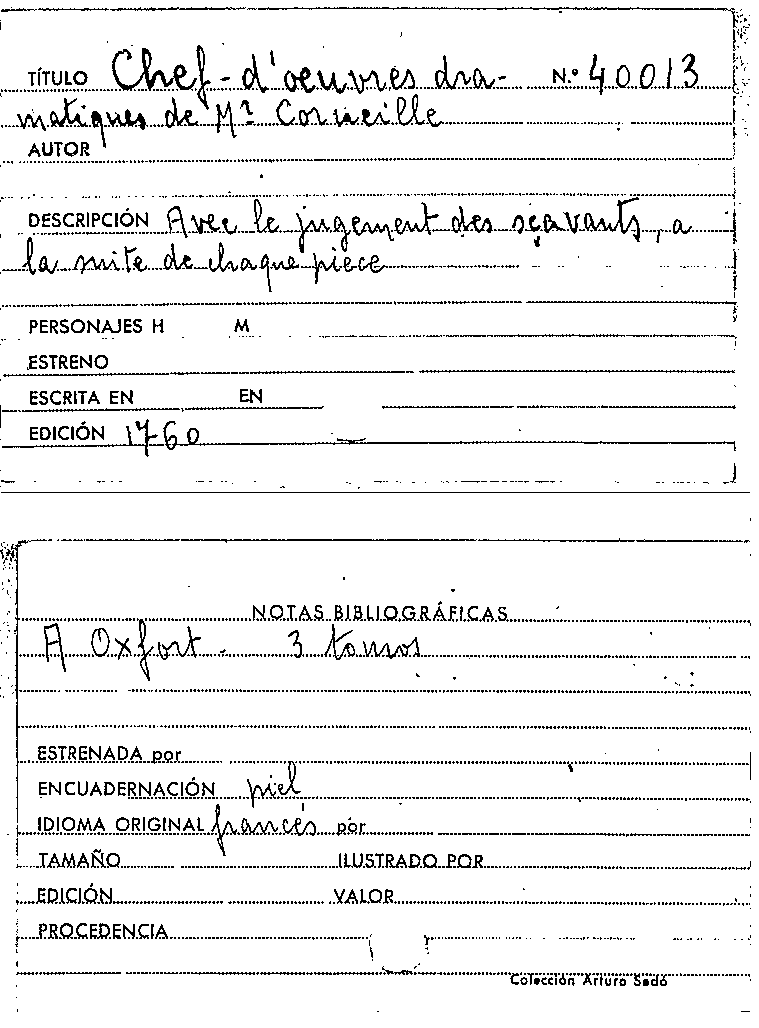 TÍTULO Chef-d'oeuvres dra- N.º 40013
matiques de Mr Corneille
AUTOR
DESCRIPCIÓN Avec le jugement des sçavants, a
la suite de chaque piece
PERSONAJES H M
ESTRENO
ESCRITA EN EN
EDICIÓN 1760
NOTAS BIBLIOGRÁFICAS
A Oxfort. 3 tomos
ESTRENADA por
ENCUADERNACIÓN piel
IDIOMA ORIGINAL francés por
TAMAÑO ILUSTRADO POR
EDICIÓN VALOR
PROCEDENCIA
Colección Arturo Sedó